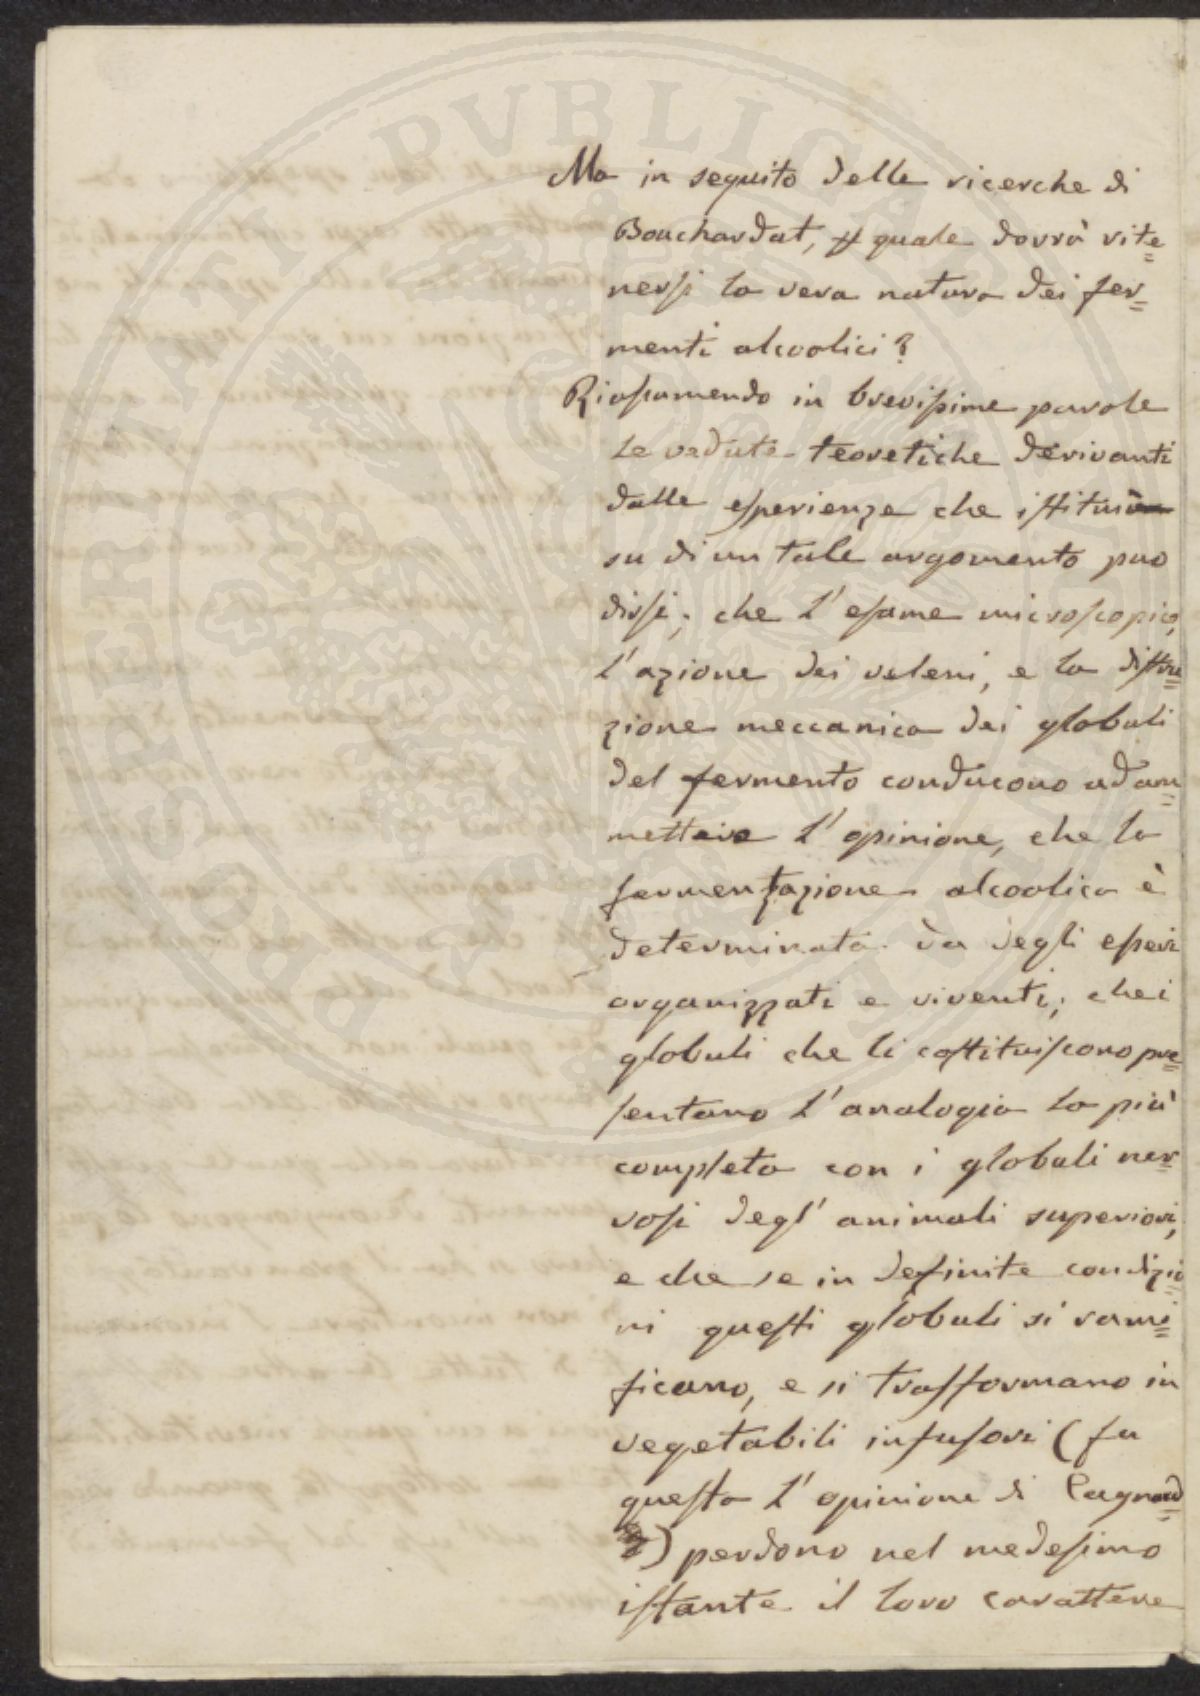 Ma in seguito delle ricerche di
Bouchardat, quale dovrà rite=
nersi la vera natura dei fer=
menti alcoolici?
Riassumendo in brevissime parole
le vedute teoretiche derivanti
dalle esperienze che istituì
su di un tale argomento puo
dirsi; che l'esame microscopico,
l'azione dei veleni, e la distru=
zione meccanica dei globuli
del fermento conducono ad am=
mettere l'opinione, che la
fermentazione alcoolica è
determinata da degli esseri
organizzati e viventi; che i
globuli che li costituiscono pre=
sentano l'analogia la più
completa con i globuli ner=
vosi degl'animali superiori,
e che se in definite condizio=
ni questi globuli si rami=
ficano, e si trasformano in
vegetabili infusori (fu
questa l'opinione di Cagnard=
) perdono nel medesimo
istante il loro carattere
PROSPERITATI PVBLICAE